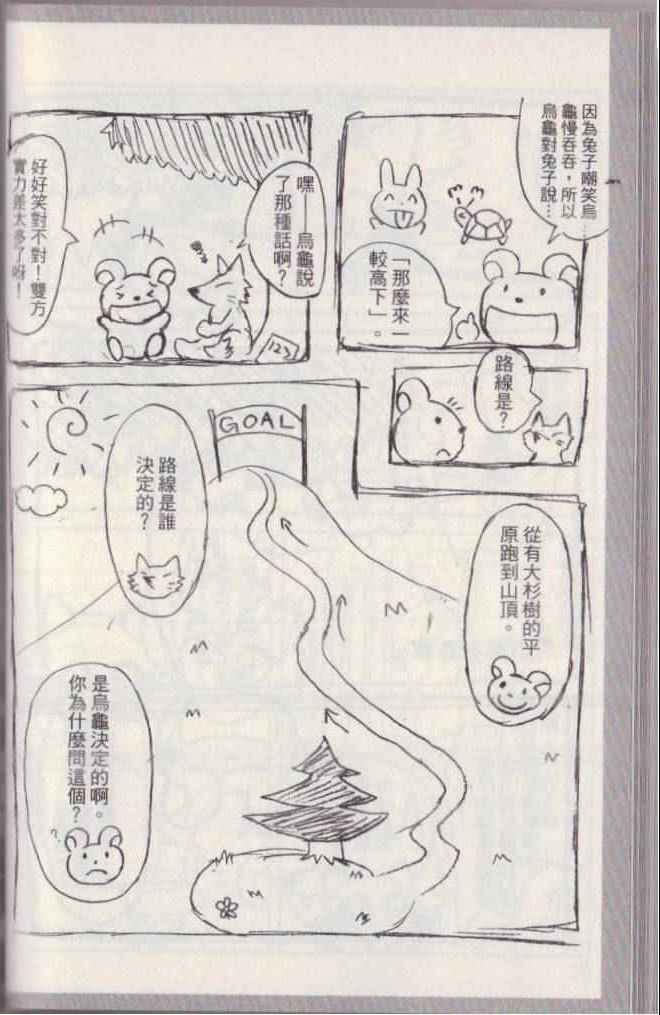 因為兔子嘲笑烏
龜慢吞吞，所以
烏龜對兔子說…
「那麼來一
較高下」。
嘿——烏龜說
了那種話啊？
123
好好笑對不對！雙方
實力差太多了呀！
路線是？
從有大杉樹的平
原跑到山頂。
GOAL
路線是誰
決定的？
是烏龜決定的啊。
你為什麼問這個？
?
?